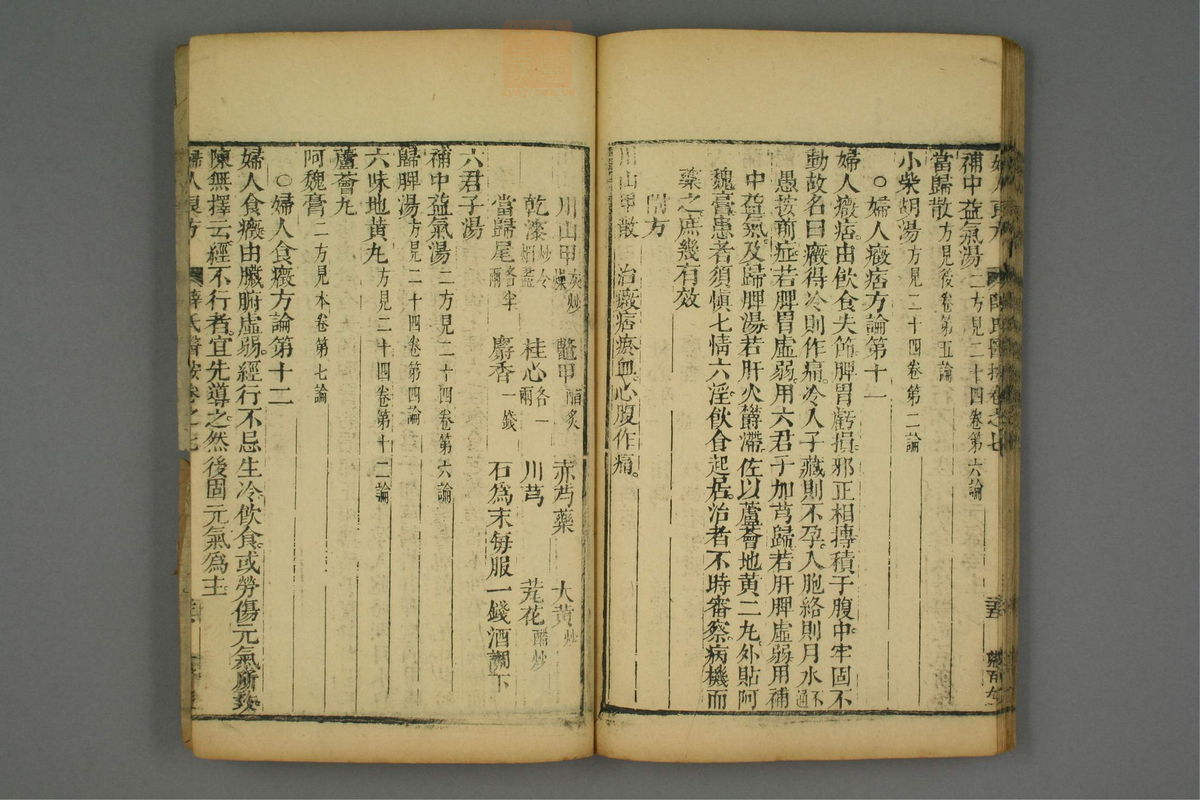 補中益氣湯二方見二十四卷第六論
當歸散方見後卷第五論
小柴胡湯方見二十四卷第二論
○婦人癥痞方論第十一
婦人癥痞由飲食失節脾胃虧損邪正相搏積于腹中牢固不
動故名曰癥得冷則作痛冷入子藏則不孕入胞絡則月水不通
愚按前症若脾胃虛弱用六君子加芎歸若肝脾虛弱用補
中益氣及歸脾湯若肝火鬱滯佐以蘆薈地黃二丸外貼阿
魏膏患者須慎七情六淫飲食起居治者不時審察病機而
藥之庶幾有效
附方
川山甲散 治癥痞瘀血心腹作痛
川山甲灰炒燥 鱉甲醋炙 赤芍藥 大黃炒
乾漆炒令烟盡 桂心各一兩 川芎 芫花醋炒
當歸尾各半兩 麝香一錢 右爲末每服一錢酒調下
六君子湯
補中益氣湯二方見二十四卷第六論
歸脾湯方見二十四卷第四論
六味地黃丸方見二十四卷第十二論
蘆薈丸
阿魏膏二方見本卷第七論
○婦人食癥方論第十二
婦人食癥由臟腑虛弱經行不忌生冷飲食或勞傷元氣所致
陳無擇云經不行者宜先導之然後固元氣爲主
婦人良方 薛氏醫按卷之七